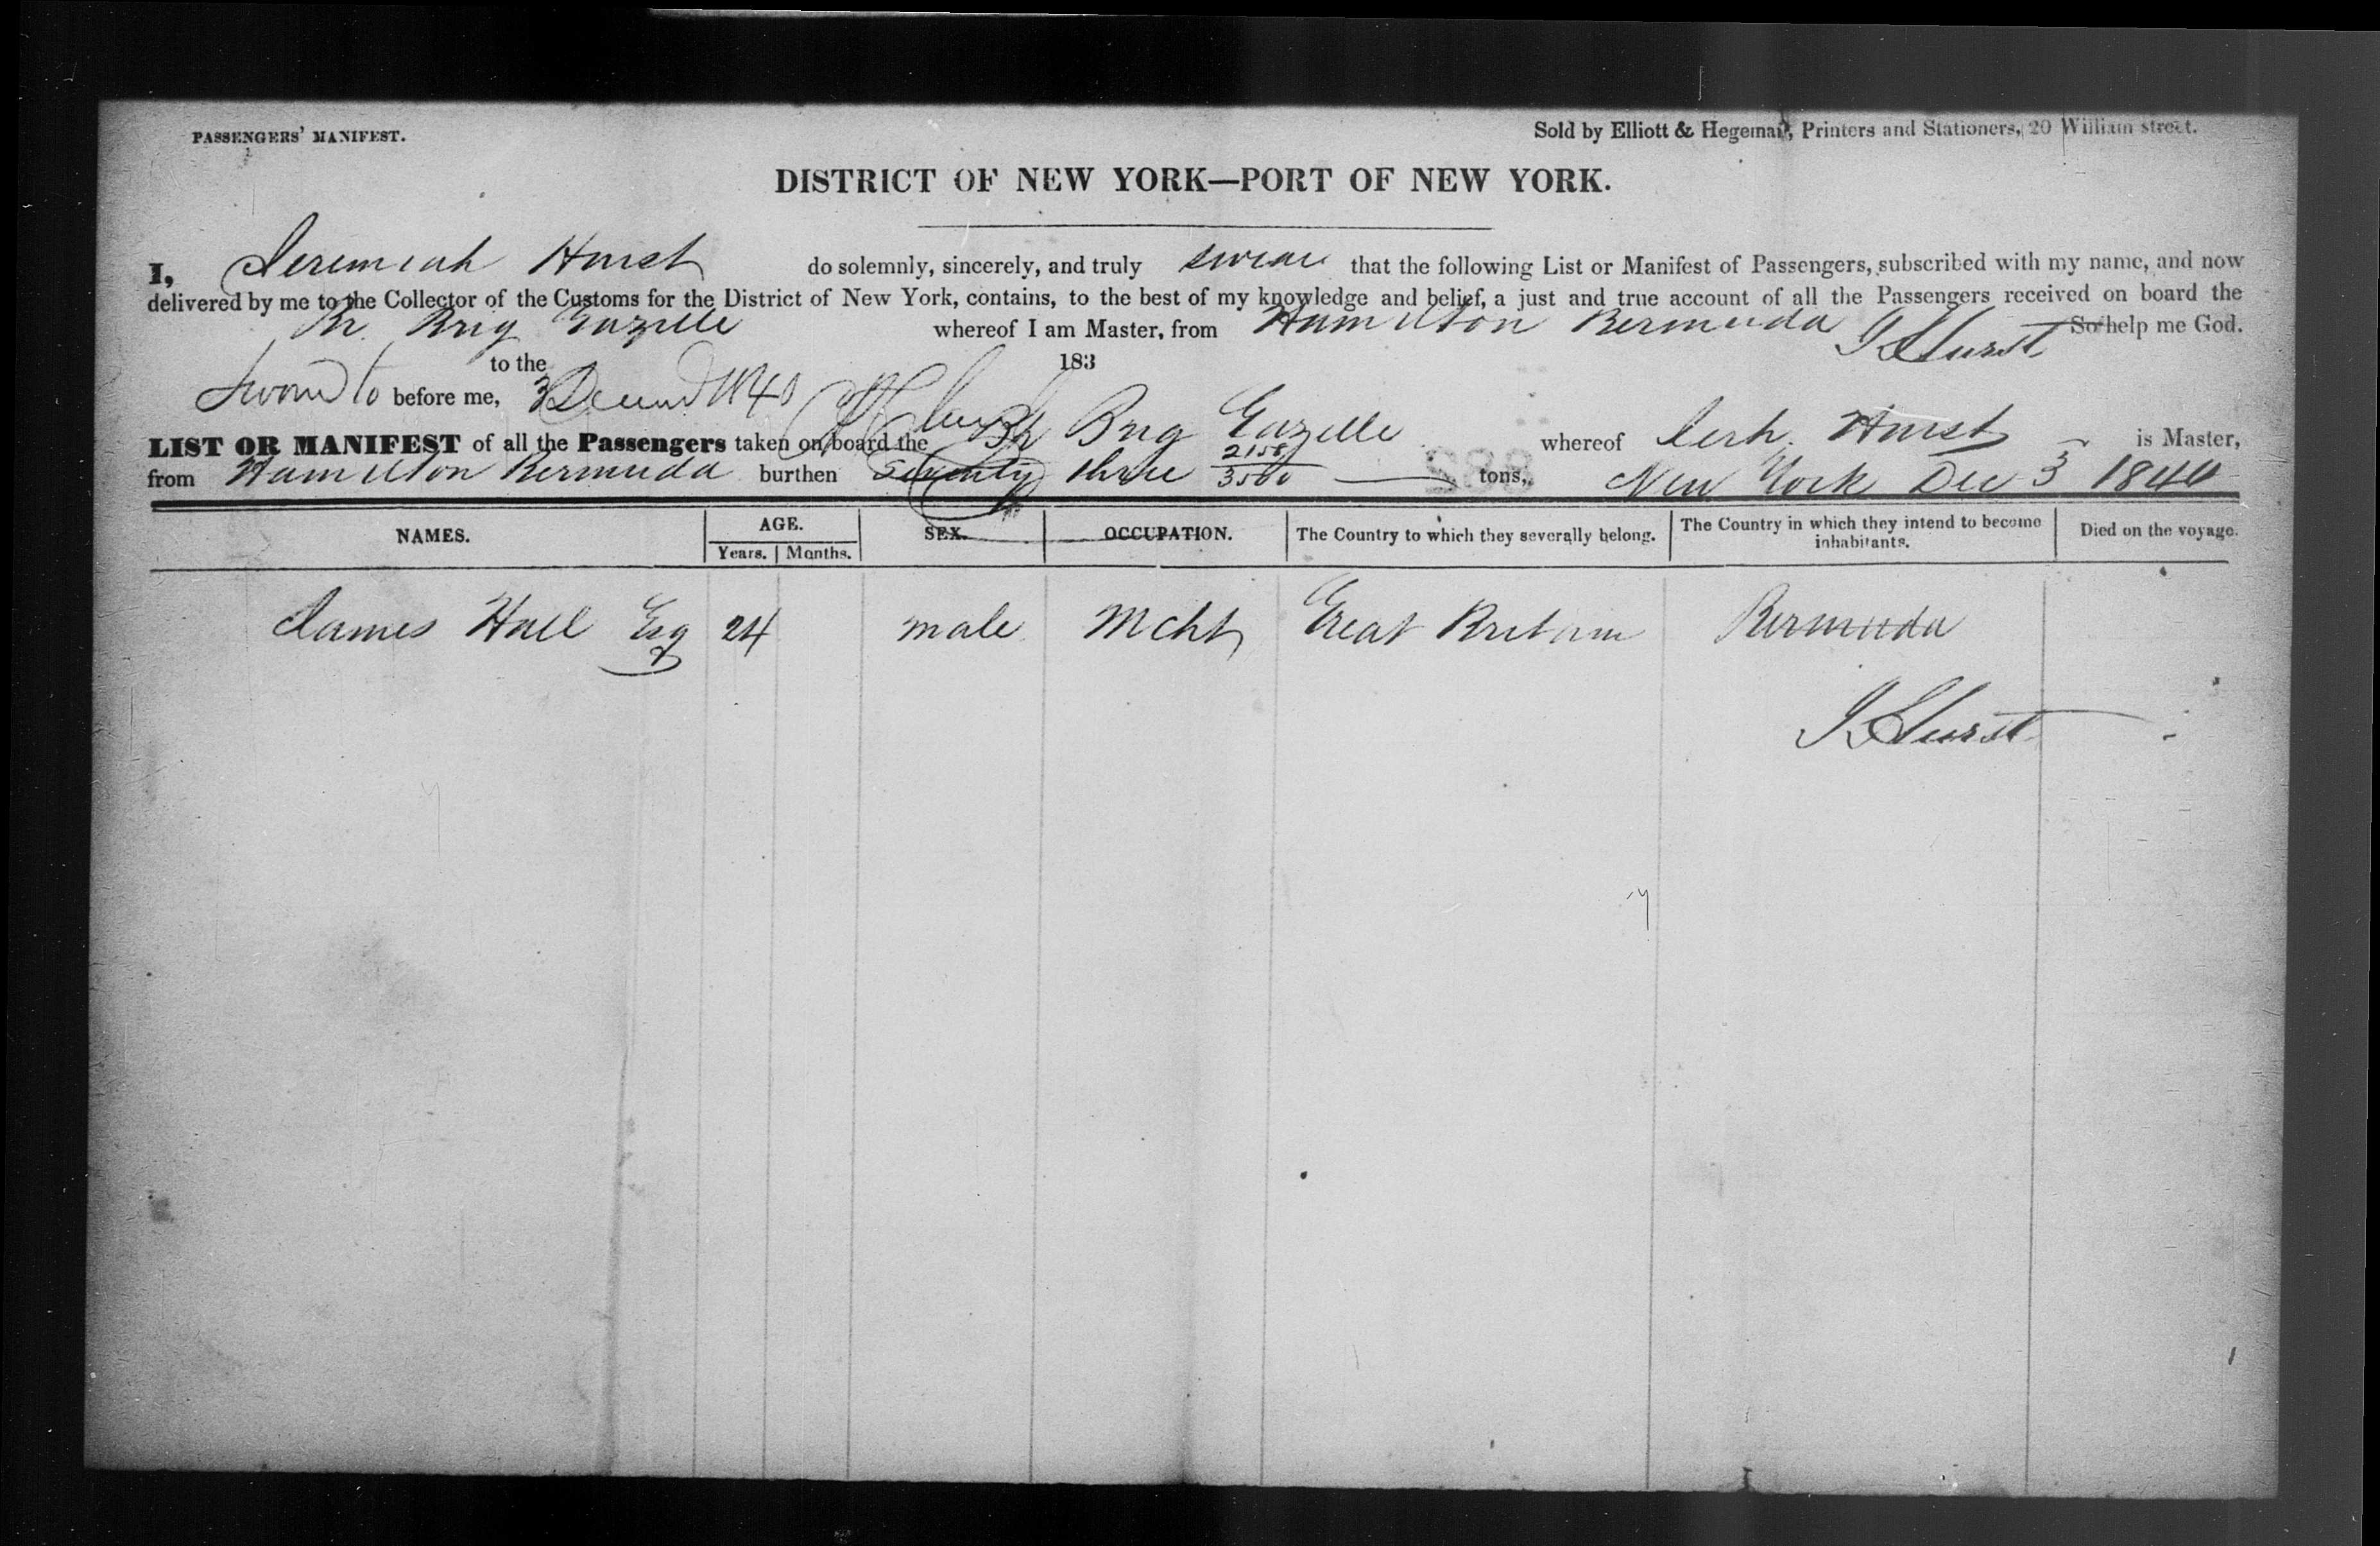 PASSENGERS' MANIFEST.
Sold by Elliott & Hegeman, Printers and Stationers, 20 William street.
DISTRICT OF NEW YORK—PORT OF NEW YORK.
I, Jeremiah Hurst do solemnly, sincerely, and truly swear that the following List or Manifest of Passengers, subscribed with my name, and now
delivered by me to the Collector of the Customs for the District of New York, contains, to the best of my knowledge and belief, a just and true account of all the Passengers received on board the
Br. Brig Gazelle whereof I am Master, from Hamilton Bermuda So help me God.
J Hurst
to the 183
Sworn to before me, 3 Decemr 1840
LIST OR MANIFEST of all the Passengers taken on board the Br Brig Gazelle whereof Jerh. Hurst is Master,
from Hamilton Bermuda burthen Seventy three 2158/3500 tons, New York Dec 3 1840
NAMES. AGE. SEX. OCCUPATION. The Country to which they severally belong. The Country in which they intend to become inhabitants. Died on the voyage.
Years. Months.
James Hall Esq 24 male Mcht Great Britain Bermuda
J Hurst